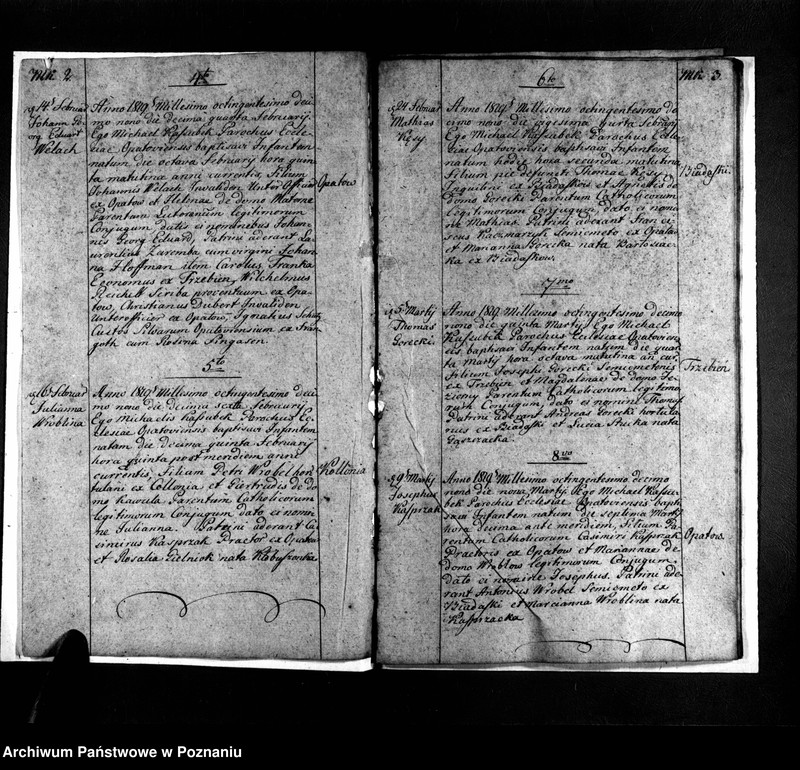 MK 2.
4to
d. 14t Februar
Johann Ge-
org Eduart
Welach
Anno 1819 Millesimo octingentesimo deci
mo nono die decima quarta Februarij
Ego Michael Kassubek Parochus Eccle-
siae Opatoviensis baptisavi Infantem
natum die octava Februarij hora quin
ta matutina anni currentis, Filium
Johannis Welach Invaliden Unter Officier
ex Opatow et Helenae de domo Materne
Parentum Lutoranium legitimorum
Conjugum datis ei nominebus Johan-
nes Georg Eduard, Patrini aderant La-
urentius Zaremba cum virgini Johan-
na Hoffman item Carolus Franka
Economus ex Trzebien, Wilchelmus
Reichelt Scriba proventuum ex Opa-
tow, Christianus Dubert Invaliden
Unterofficier ex Opatow, Ignatius Schulz
Custos Silvarum Opatoviensium ex
goth cum Rosina Singasen
Opatow
5to
d. 16 Februar
Julianna
Wroblina
Anno 1819 Millesimo octingentesimo deci
mo nono die decima sexta Februarij
Ego Michaelis Kassubek Parochus Ec-
clesiae Opatoviensis baptisavi Infantem
natam die decima quinta Februarij
hora quinta post meridiem anni
currentis, Filiam Petri Wrobel hor
tulani ex Collonia et Giertrudis de do
mo Kawula Parentum Catholicorum
legitimorum Conjugum dato ei nomi-
ne Julianna. Patrini aderant Ca-
simirus Kasprzak Praetor ex Opatow
et Rosalia Zielniok nata Klobuszonka
Kollonia
MK 3.
6to
d. 24 Februar
Mathias
Kęsy
Anno 1819 Millesimo octingentesimo de
cimo nono die vigesima quarta Februarij
Ego Michael Kassubek Parochus Eccle-
siae Opatoviensis baptisavi Infantem
natum hodie hora secunda matutina
Filium pie defuncti Thomae Kęsy
Inquilini ex Biadaszkow et Agnetis de
domo Gorecki Parentum Catholicorum
legitimorum Conjugum, dato ei nomi
ne Mathias. Patrini aderant Fran cis-
cus Kaczmarzyk Semicmeto ex Opatow
et Marianna Gorecka nata Bartosiac-
ka ex Biadaszkow.
Biadaski.
7mo
d. 5t Martij
Thomas
Gorecki
Anno 1819 Millesimo octingentesimo decimo
nono die quinta Martij Ego Michael
Kassubek Parochus Ecclesiae Opatovien-
sis, baptisavi Infantem natum die quar
ta Martij hora octava matutina an: cur:
Filium Josephi Gorecki Semicmetonis
ex Trzebien et Magdalenae de domo
Parentum Catholicorum legitimo
rum Conjugum, dato ei nomine Thomas
Patrini aderant Andreas Gorecki hortula
nus ex Biadaski et Lucia Stucka nata
Trzebień
8vo
d. 9t Martij
Josephus
Kasprzak
Anno 1819 Millesimo octingentesimo decimo
nono die nona Martij Ego Michael Kassu-
bek Parochus Ecclesiae Opatoviensis bapti
savi Infantem natum die septima Martij
hora decima ante meridiem, Filium Pa-
rentum Catholicorum Casimiri Kasprzak
Praetoris ex Opatow et Mariannae de
domo Wroblow legitimorum Conjugum,
dato ei nomine Josephus. Patrini ade
rant Antonius Wrobel Semicmeto ex
Biadaski et Marcianna Wroblina nata
Kasprzacka
Opatow.
Archiwum Państwowe w Poznaniu